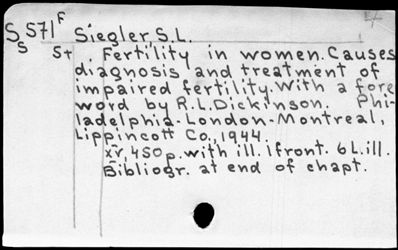 S571F Siegler, S.L.
S
St Fertility in women. Causes
diagnosis and treatment of
impaired fertility. With a fore
word by R.L. Dickinson. Phi-
ladelphia-London-Montreal,
Lippincott Co., 1944.
xv, 450 p. with ill. 1 front. 6 L. ill.
Bibliogr. at end of chapt.